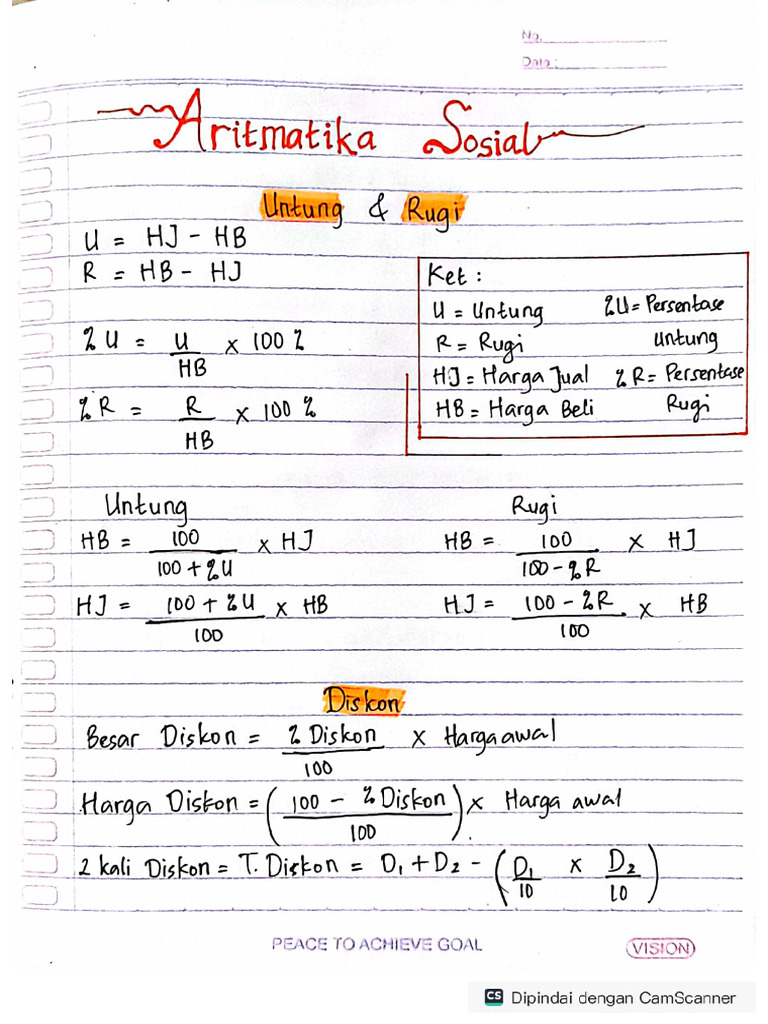 No.
Date:
Aritmatika Sosial
Untung & Rugi
U = HJ - HB
R = HB - HJ
% U = U/HB x 100 %
% R = R/HB x 100 %
Ket :
U = Untung
R = Rugi
HJ = Harga Jual
HB = Harga Beli
%U = Persentase
Untung
% R = Persentase
Rugi
Untung
HB = 100/(100 + %U) x HJ
HJ = (100 + %U)/100 x HB
Rugi
HB = 100/(100 - %R) x HJ
HJ = (100 - %R)/100 x HB
Diskon
Besar Diskon = % Diskon/100 x Harga awal
Harga Diskon = ((100 - % Diskon)/100) x Harga awal
2 kali Diskon = T. Diskon = D₁ + D₂ - (D₁/10 x D₂/10)
PEACE TO ACHIEVE GOAL
VISION
CS Dipindai dengan CamScanner